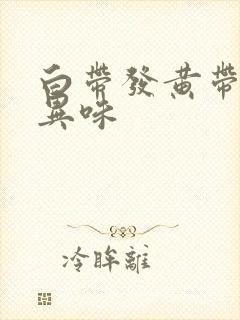 白帶發黃帶
異味
冷眸離